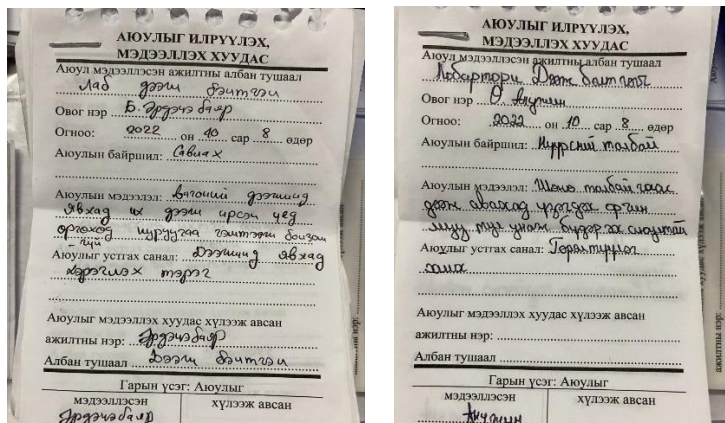 АЮУЛЫГ ИЛРҮҮЛЭХ,
МЭДЭЭЛЛЭХ ХУУДАС
Аюул мэдээллэсэн ажилтны албан тушаал
Лаб дээж бэлтгэл
Овог нэр Б. Эрдэнэбаяр
Огноо: 2022 он 10 сар 8 өдөр
Аюулын байршил: Савлах
Аюулын мэдээлэл: вагоний дээжинд
явхад их дээж ирсэн үед
өргөхөд нуруугаа гэмтээж болзош
гүй
Аюулыг устгах санал: Дээжинд явхад
хэрэглэх тэрэг
Аюулыг мэдээллэх хуудас хүлээж авсан
ажилтны нэр: Эрдэнэбаяр
Албан тушаал Дээж бэлтгэл
Гарын үсэг: Аюулыг
мэдээллэсэн хүлээж авсан
Эрдэнэбаяр
АЮУЛЫГ ИЛРҮҮЛЭХ,
МЭДЭЭЛЛЭХ ХУУДАС
Аюул мэдээллэсэн ажилтны албан тушаал
Дээж
Овог нэр
Огноо: 2022 он 10 сар 8 өдөр
Аюулын байршил: Нүүрсний талбай
Аюулын мэдээлэл: Шөнө талбайгаас
дээж авахад үзэгдэх орчин
муу тул унаж бүдэрэх
Аюулыг устгах санал: Гэрэлтүүлэг
Аюулыг мэдээллэх хуудас хүлээж авсан
ажилтны нэр:
Албан тушаал
Гарын үсэг: Аюулыг
мэдээллэсэн хүлээж авсан